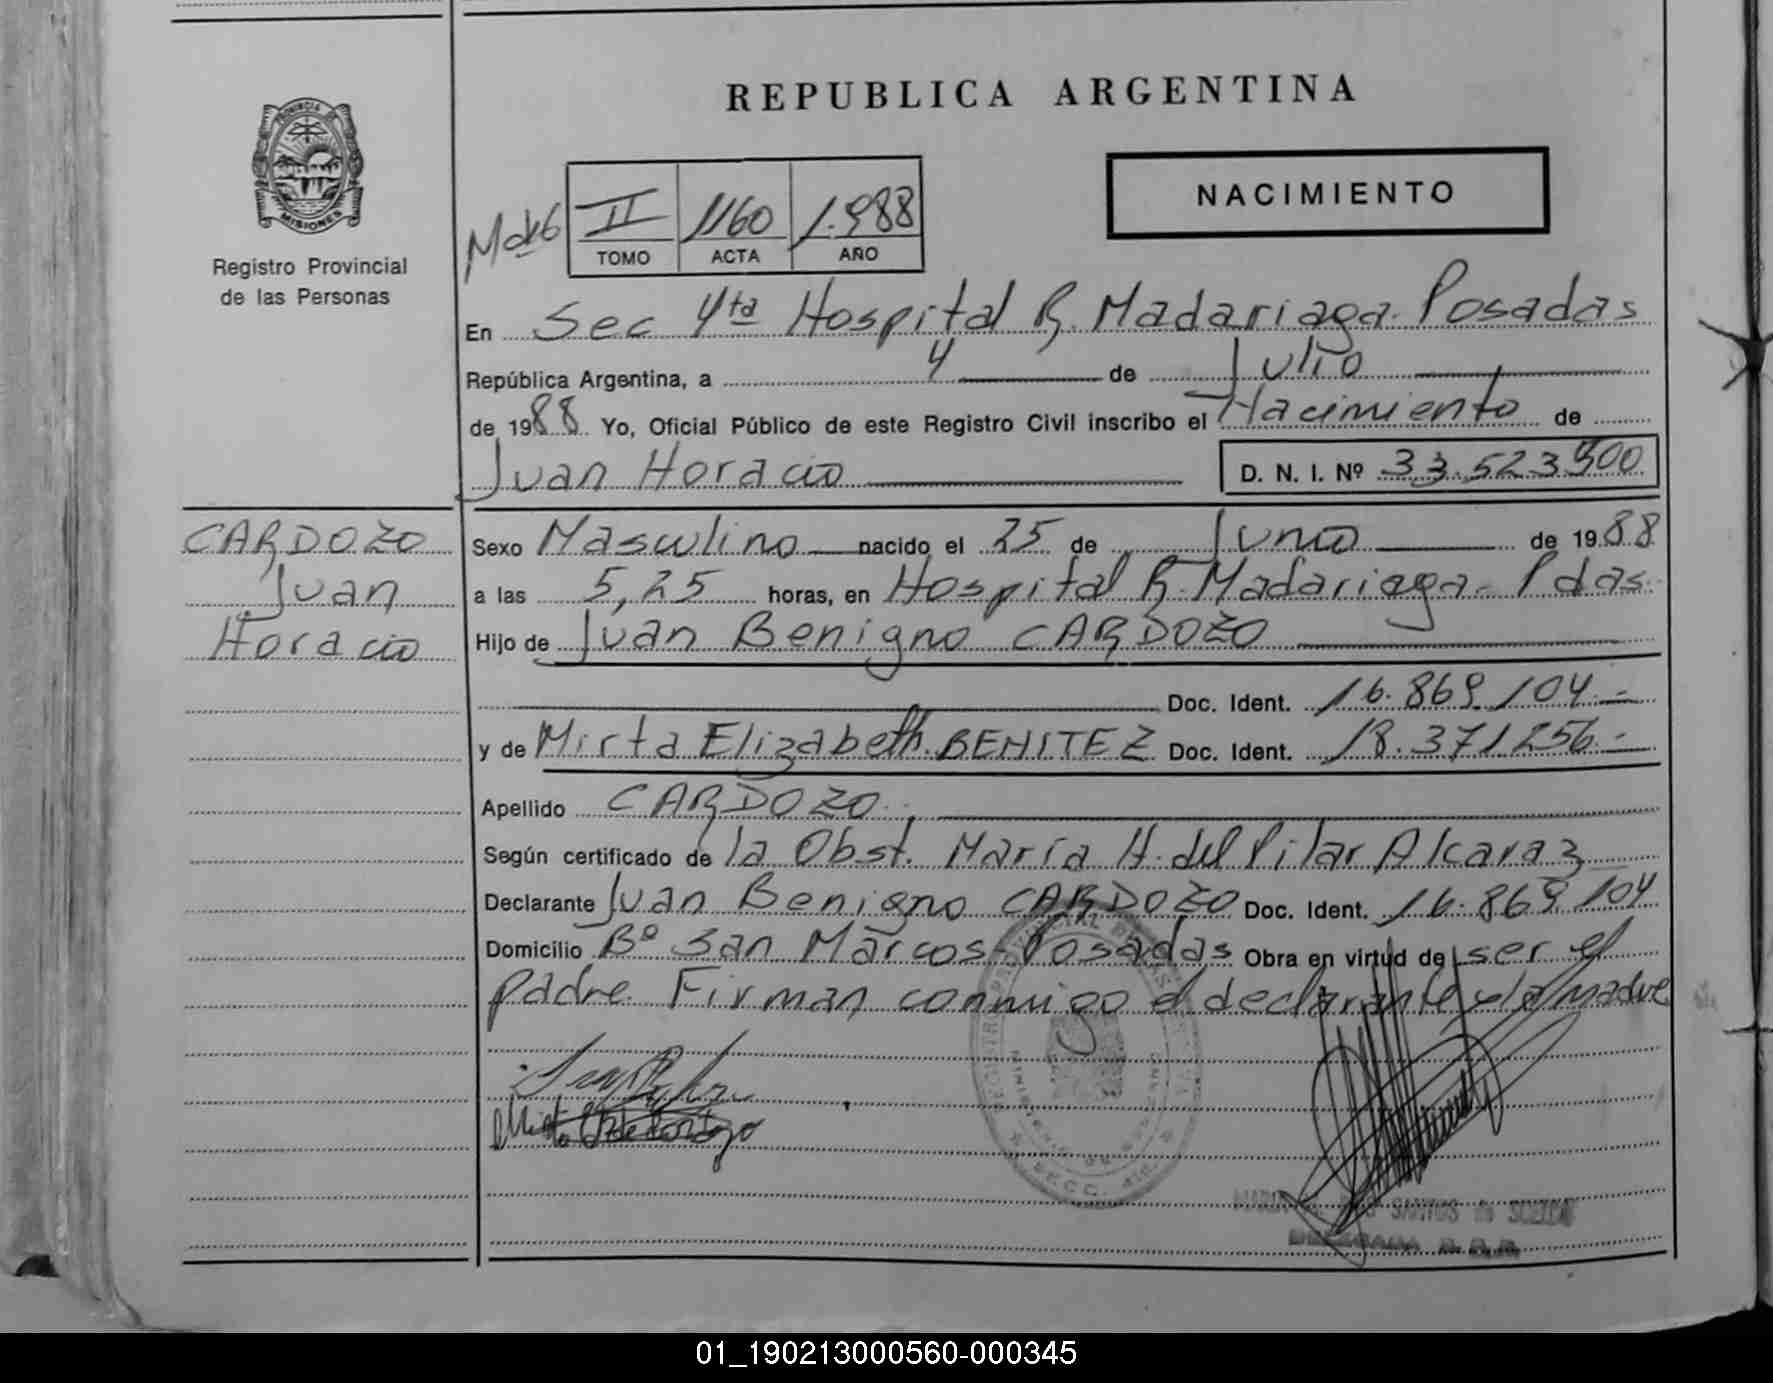 REPUBLICA ARGENTINA
PROVINCIA DE
MISIONES
Registro Provincial
de las Personas
NACIMIENTO
II 1160 1.988
TOMO ACTA AÑO
En Sec 4ta Hospital R. Madariaga. Posadas
República Argentina, a 4 de Julio
de 1988 Yo, Oficial Público de este Registro Civil inscribo el Nacimiento de
Juan Horacio D. N. I. Nº 33.523.500
CARDOZO
Juan
Horacio
Sexo Masculino nacido el 25 de Junio de 1988
a las 5,25 horas, en Hospital R. Madariaga - Pdas.
Hijo de Juan Benigno CARDOZO
Doc. Ident. 16.869.104.-
y de Mirta Elizabeth BENITEZ Doc. Ident. 18.371.256.-
Apellido CARDOZO.
Según certificado de la Obst. María H. del Pilar Alcaraz
Declarante Juan Benigno CARDOZO Doc. Ident. 16.869.104
Domicilio Bº San Marcos - Posadas Obra en virtud de ser el
padre. Firman conmigo el declarante y la madre
SANTOS de
DELEGADA
01_190213000560-000345